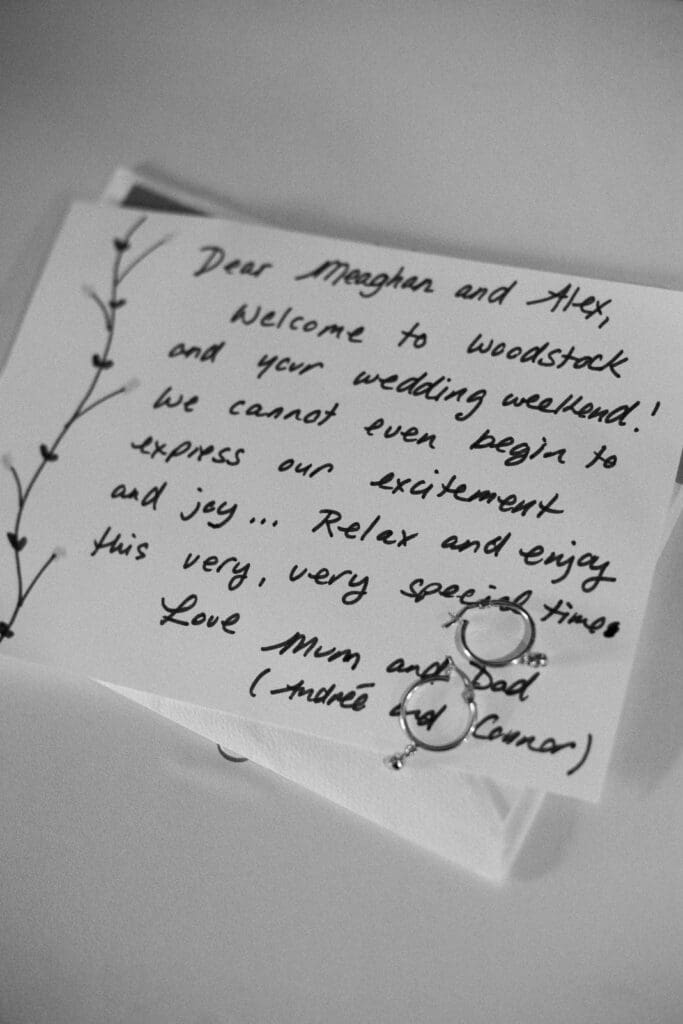 Dear Meaghan and Alex,
Welcome to Woodstock
and your wedding weekend!
We cannot even begin to
express our excitement
and joy... Relax and enjoy
this very, very special time.
Love Mum and Dad
(Andreé and Connor)